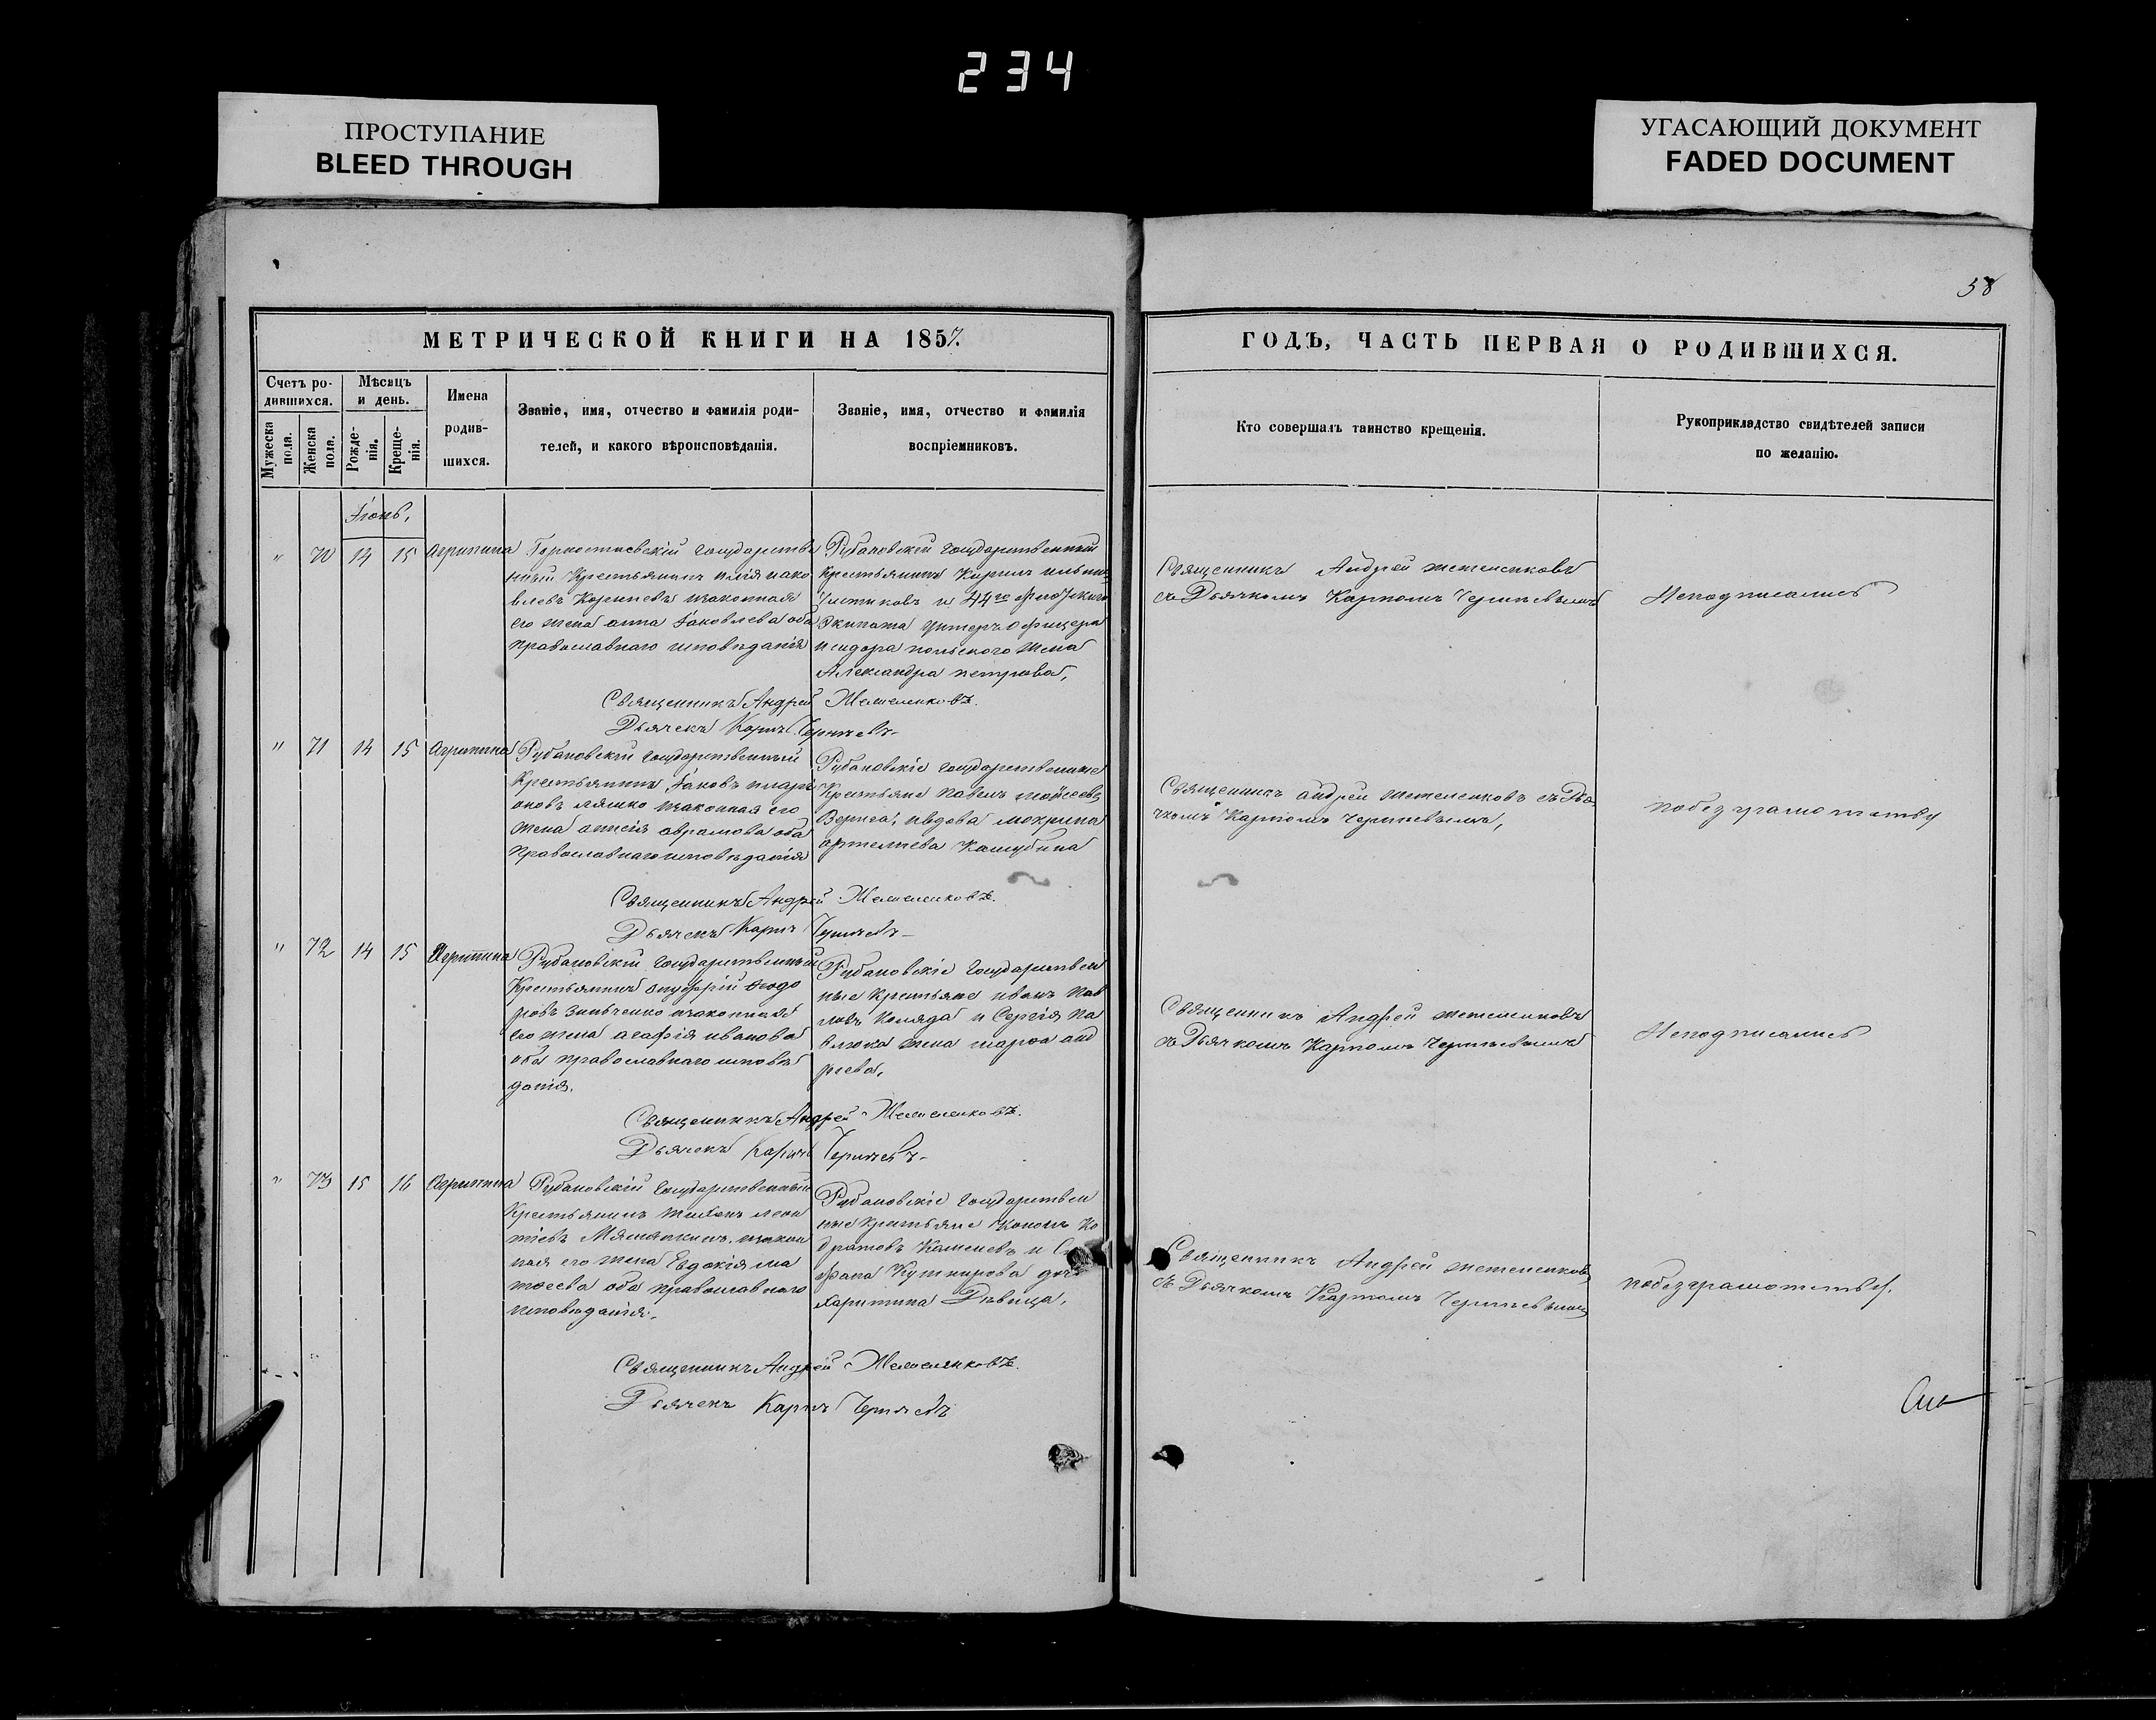 234
ПРОСТУПАНИЕ
BLEED THROUGH
УГАСАЮЩИЙ ДОКУМЕНТ
FADED DOCUMENT
58
МЕТРИЧЕСКОЙ КНИГИ НА 1857.
Счетъ ро-
дившихся.
Мужеска
пола.
Женска
пола.
Мѣсяцъ
и день.
Рожде-
нія.
Креще-
нія.
Имена
родив-
шихся.
Званіе, имя, отчество и фамилія роди-
телей, и какого вѣроисповѣданія.
Званіе, имя, отчество и фамилія
воспріемниковъ.
ГОДЪ, ЧАСТЬ ПЕРВАЯ О РОДИВШИХСЯ.
Кто совершалъ таинство крещенія.
Рукоприкладство свидѣтелей записи
по желанію.
Іюнь,
" 70 14 15 Агрипина
Горностаевскій Государстве
нный Крестьянинъ илія іако
влевъ изаконная
его жена анна Іаковлева оба
православнаго исповѣданія
Рубановскій Государственный
крестьянинъ Кирилъ
и 44го флотскаго
Экипажа Унтеръ Офицера
исидора польского жена
Александра петрова,
Священникъ Андрей
съ Дьячкомъ Карпомъ Черничевымъ
Неподписались
Священникъ Андрей
Дьячекъ Карпъ Черничевъ
" 71 14 15 Агрипина
Рубановскій Государственный
Крестьянинъ Іаковъ илари
оновъ ляшко изаконная его
жена аврамова оба
Православнаго исповѣданія
Рубановскіе Государственные
Крестьяне Павелъ моисеевъ
Верига, ивдова макрина
артемиева
Священникъ андрей съ Дья
чкомъ Карпомъ Черничевымъ,
побезграмотству
Священникъ Андрей
Дьячекъ Карпъ Черничевъ
" 72 14 15 Агрипина
Рубановскій Государственный
Крестьянинъ онуфрій Ѳеодо
ровъ зинченко изаконная
его жена агафія иванова
оба православнаго исповѣ
данія.
Рубановскіе Государствен
ные крестьяне иванъ Пав
ловъ Коляда и Сергія Па
влюка жена марѳа анд
реева,
Священникъ Андрей
съ Дьячкомъ Карпомъ Черничевымъ
Неподписались
Священникъ Андрей
Дьячекъ Карпъ Черничевъ
" 73 15 16 Агрипина
Рубановскій Государственный
Крестьянинъ леон
тіевъ изакон
ная его жена Евдокія ма
тѳеева оба православнаго
исповѣданія.
Рубановскіе Государствен
ные крестьяне Кононъ Ко
дратовъ Каменевъ и
Кушнирова дочь
Харитина Дѣвица,
Священникъ Андрей
съ Дьячкомъ Карпомъ Черничевымъ
побезграмотству.
Священникъ Андрей
Дьячекъ Карпъ Черничевъ